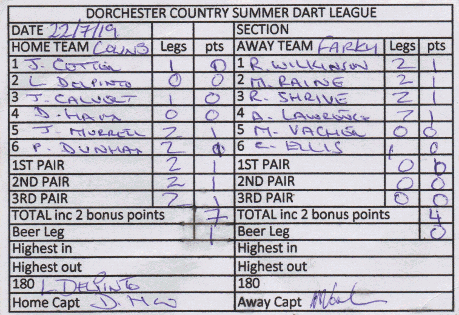 DORCHESTER COUNTRY SUMMER DART LEAGUE
DATE 22/7/19 SECTION
HOME TEAM COLNS Legs pts AWAY TEAM FARKY Legs pts
1 J. COTTER 1 0 1 R. WILKINSON 2 1
2 L. DELPINTO 0 0 2 M. RAINE 2 1
3 J. CALVERT 1 0 3 R. SHRIVE 2 1
4 D. HAM 0 0 4 A. LAWRENCE 2 1
5 J. MURRELL 2 1 5 M. VACHER 0 0
6 P. DUNHAM 2 1 6 C. ELLIS 1 0
1ST PAIR 2 1 1ST PAIR 0 0
2ND PAIR 2 1 2ND PAIR 0 0
3RD PAIR 2 1 3RD PAIR 0 0
TOTAL inc 2 bonus points 7 TOTAL inc 2 bonus points 4
Beer Leg 1 Beer Leg 0
Highest in Highest in
Highest out Highest out
180 L. DELPINTO 180
Home Capt Away Capt